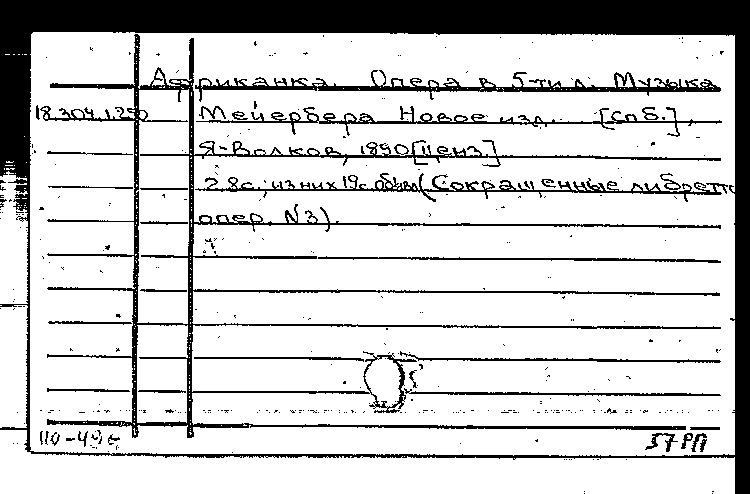 Африканка. Опера в 5-ти д. Музыка
18.304.1.250 Мейербера Новое изд. [Спб.],
Я. Волков, 1890 [ценз.]
28с.; из них 19с. объявл (Сокращенные либретто
опер. N3).
110-49г
57 РП